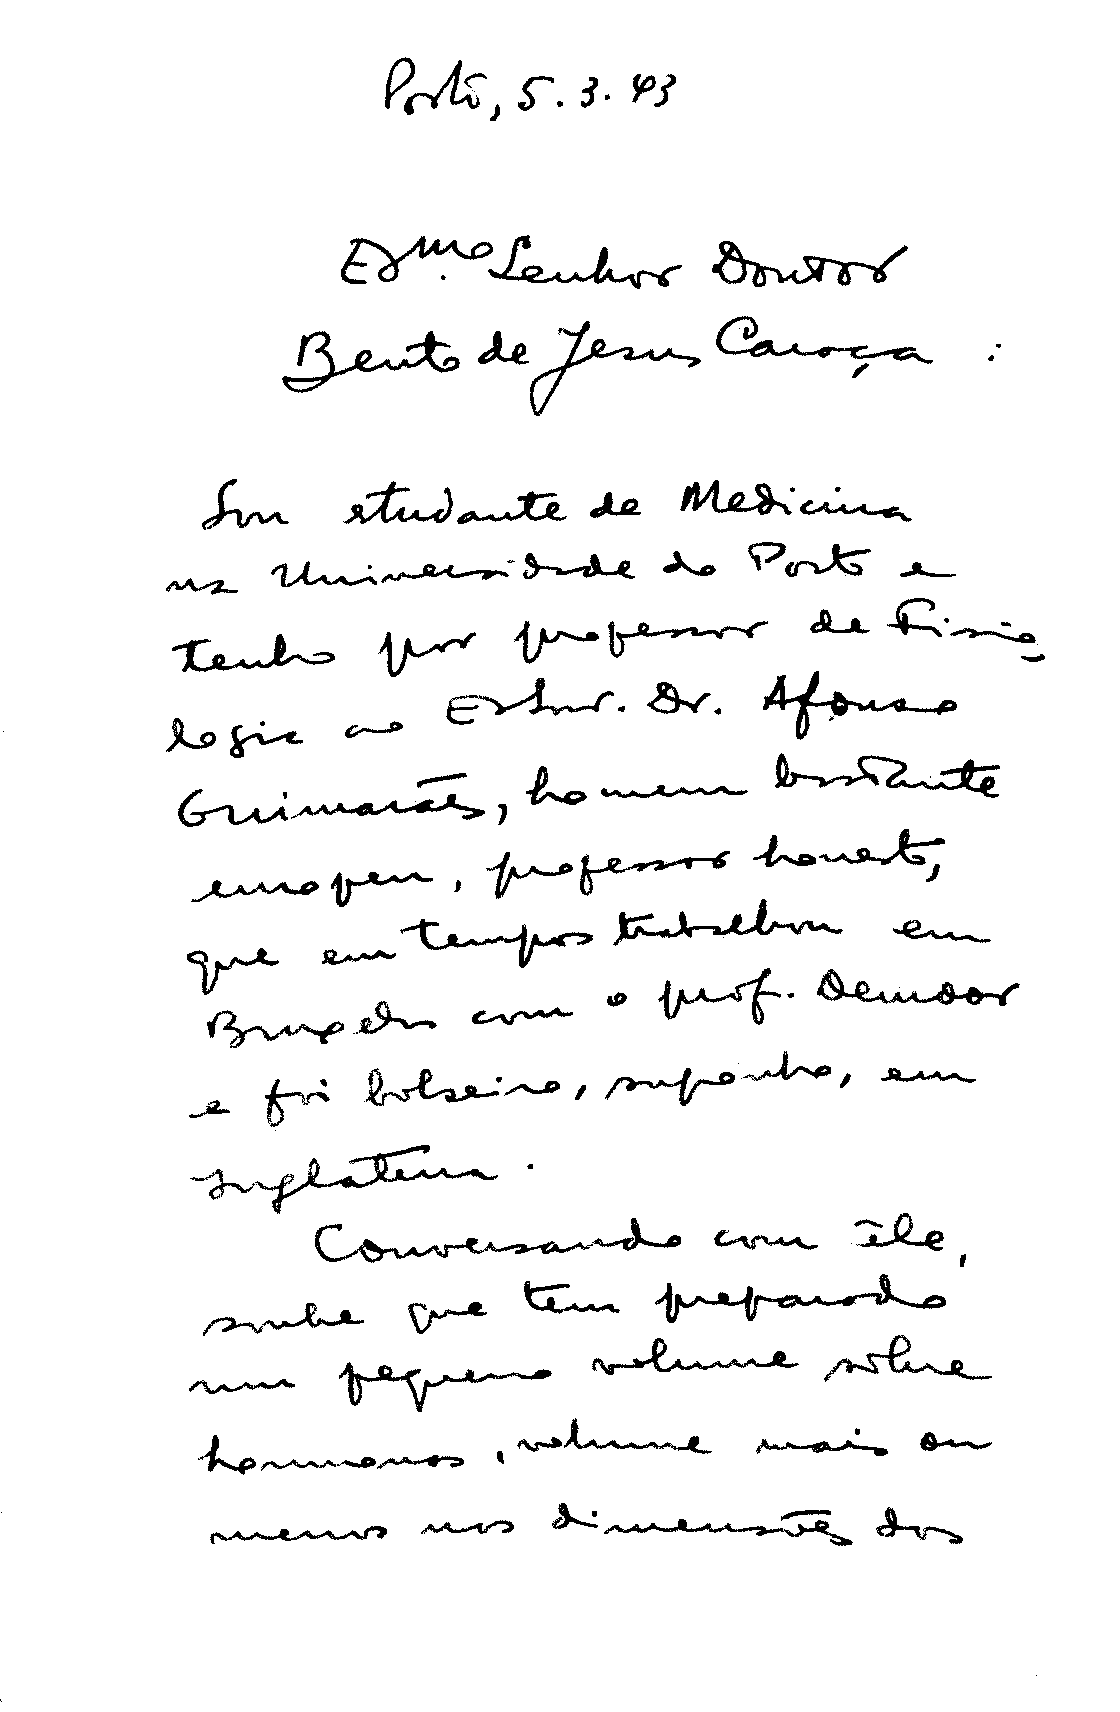 Porto, 5.3.43
Exmo. Senhor Doutor
Bento de Jesus Caraça :
Sou estudante de Medicina
na Universidade do Porto e
tenho por professor de Fisio-
logia ao Exmo Snr. Dr. Afonso
Guimarães, homem bastante
europeu, professor honesto,
que em tempos trabalhou em
Bruxelas com o prof. Demoor
e foi bolseiro, suponho, em
Inglaterra.
Conversando com êle,
soube que tem preparado
um pequeno volume sôbre
hormonas, volume mais ou
menos nas dimensões dos